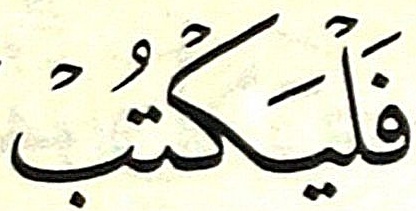 فَلْيَكْتُبْ